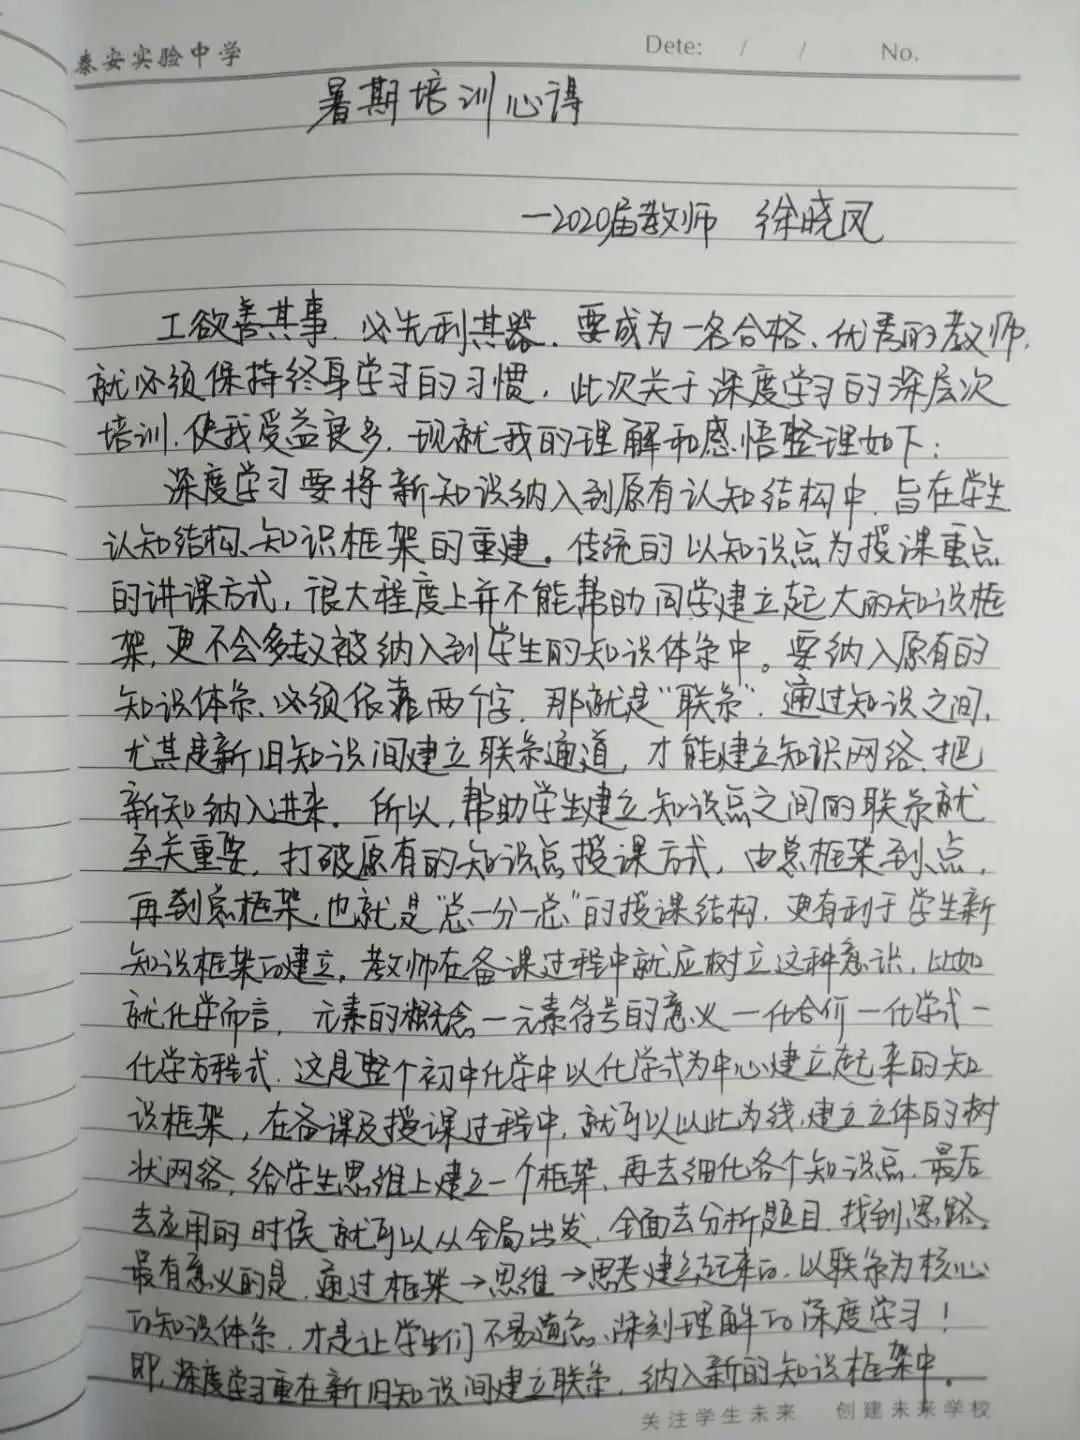 泰安实验中学
Dete: / / No.
暑期培训心得
—2020届教师 徐晓凤
工欲善其事,必先利其器,要成为一名合格、优秀的教师,
就必须保持终身学习的习惯,此次关于深度学习的深层次
培训,使我受益良多,现就我的理解和感悟整理如下:
深度学习要将新知识纳入到原有认知结构中,旨在学生
认知结构、知识框架的重建。传统的以知识点为授课重点
的讲课方式,很大程度上并不能帮助同学建立起大的知识框
架,更不会多数被纳入到学生的知识体系中。要纳入原有的
知识体系,必须依靠两个字,那就是“联系”,通过知识之间,
尤其是新旧知识间建立联系通道,才能建立知识网络,把
新知纳入进来.所以,帮助学生建立知识点之间的联系就
至关重要,打破原有的知识点授课方式,由总框架到点,
再到总框架,也就是“总—分—总”的授课结构,更有利于学生新
知识框架的建立,教师在备课过程中就应树立这种意识,比如
就化学而言,元素的概念—元素符号的意义—化合价—化学式—
化学方程式,这是整个初中化学中以化学式为中心建立起来的知
识框架,在备课及授课过程中,就可以以此为线,建立立体的树
状网络,给学生思维上建立一个框架,再去细化各个知识点,最后
去应用的时候就可以从全局出发,全面去分析题目,找到思路。
最有意义的是,通过框架→思维→思考建立起来的,以联系为核心
的知识体系,才是让学生们不易遗忘、深刻理解的深度学习!
即,深度学习重在新旧知识间建立联系,纳入新的知识框架中。
关注学生未来 创建未来学校